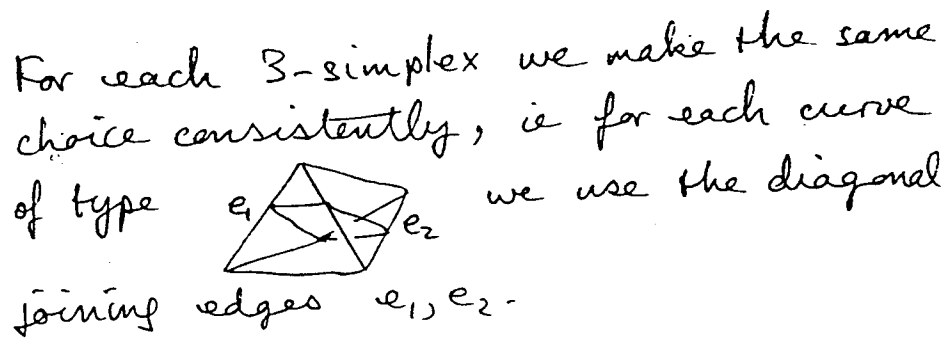 For each 3-simplex we make the same
choice consistently, ie for each curve
of type e₁ e₂ we use the diagonal
joining edges e₁, e₂.